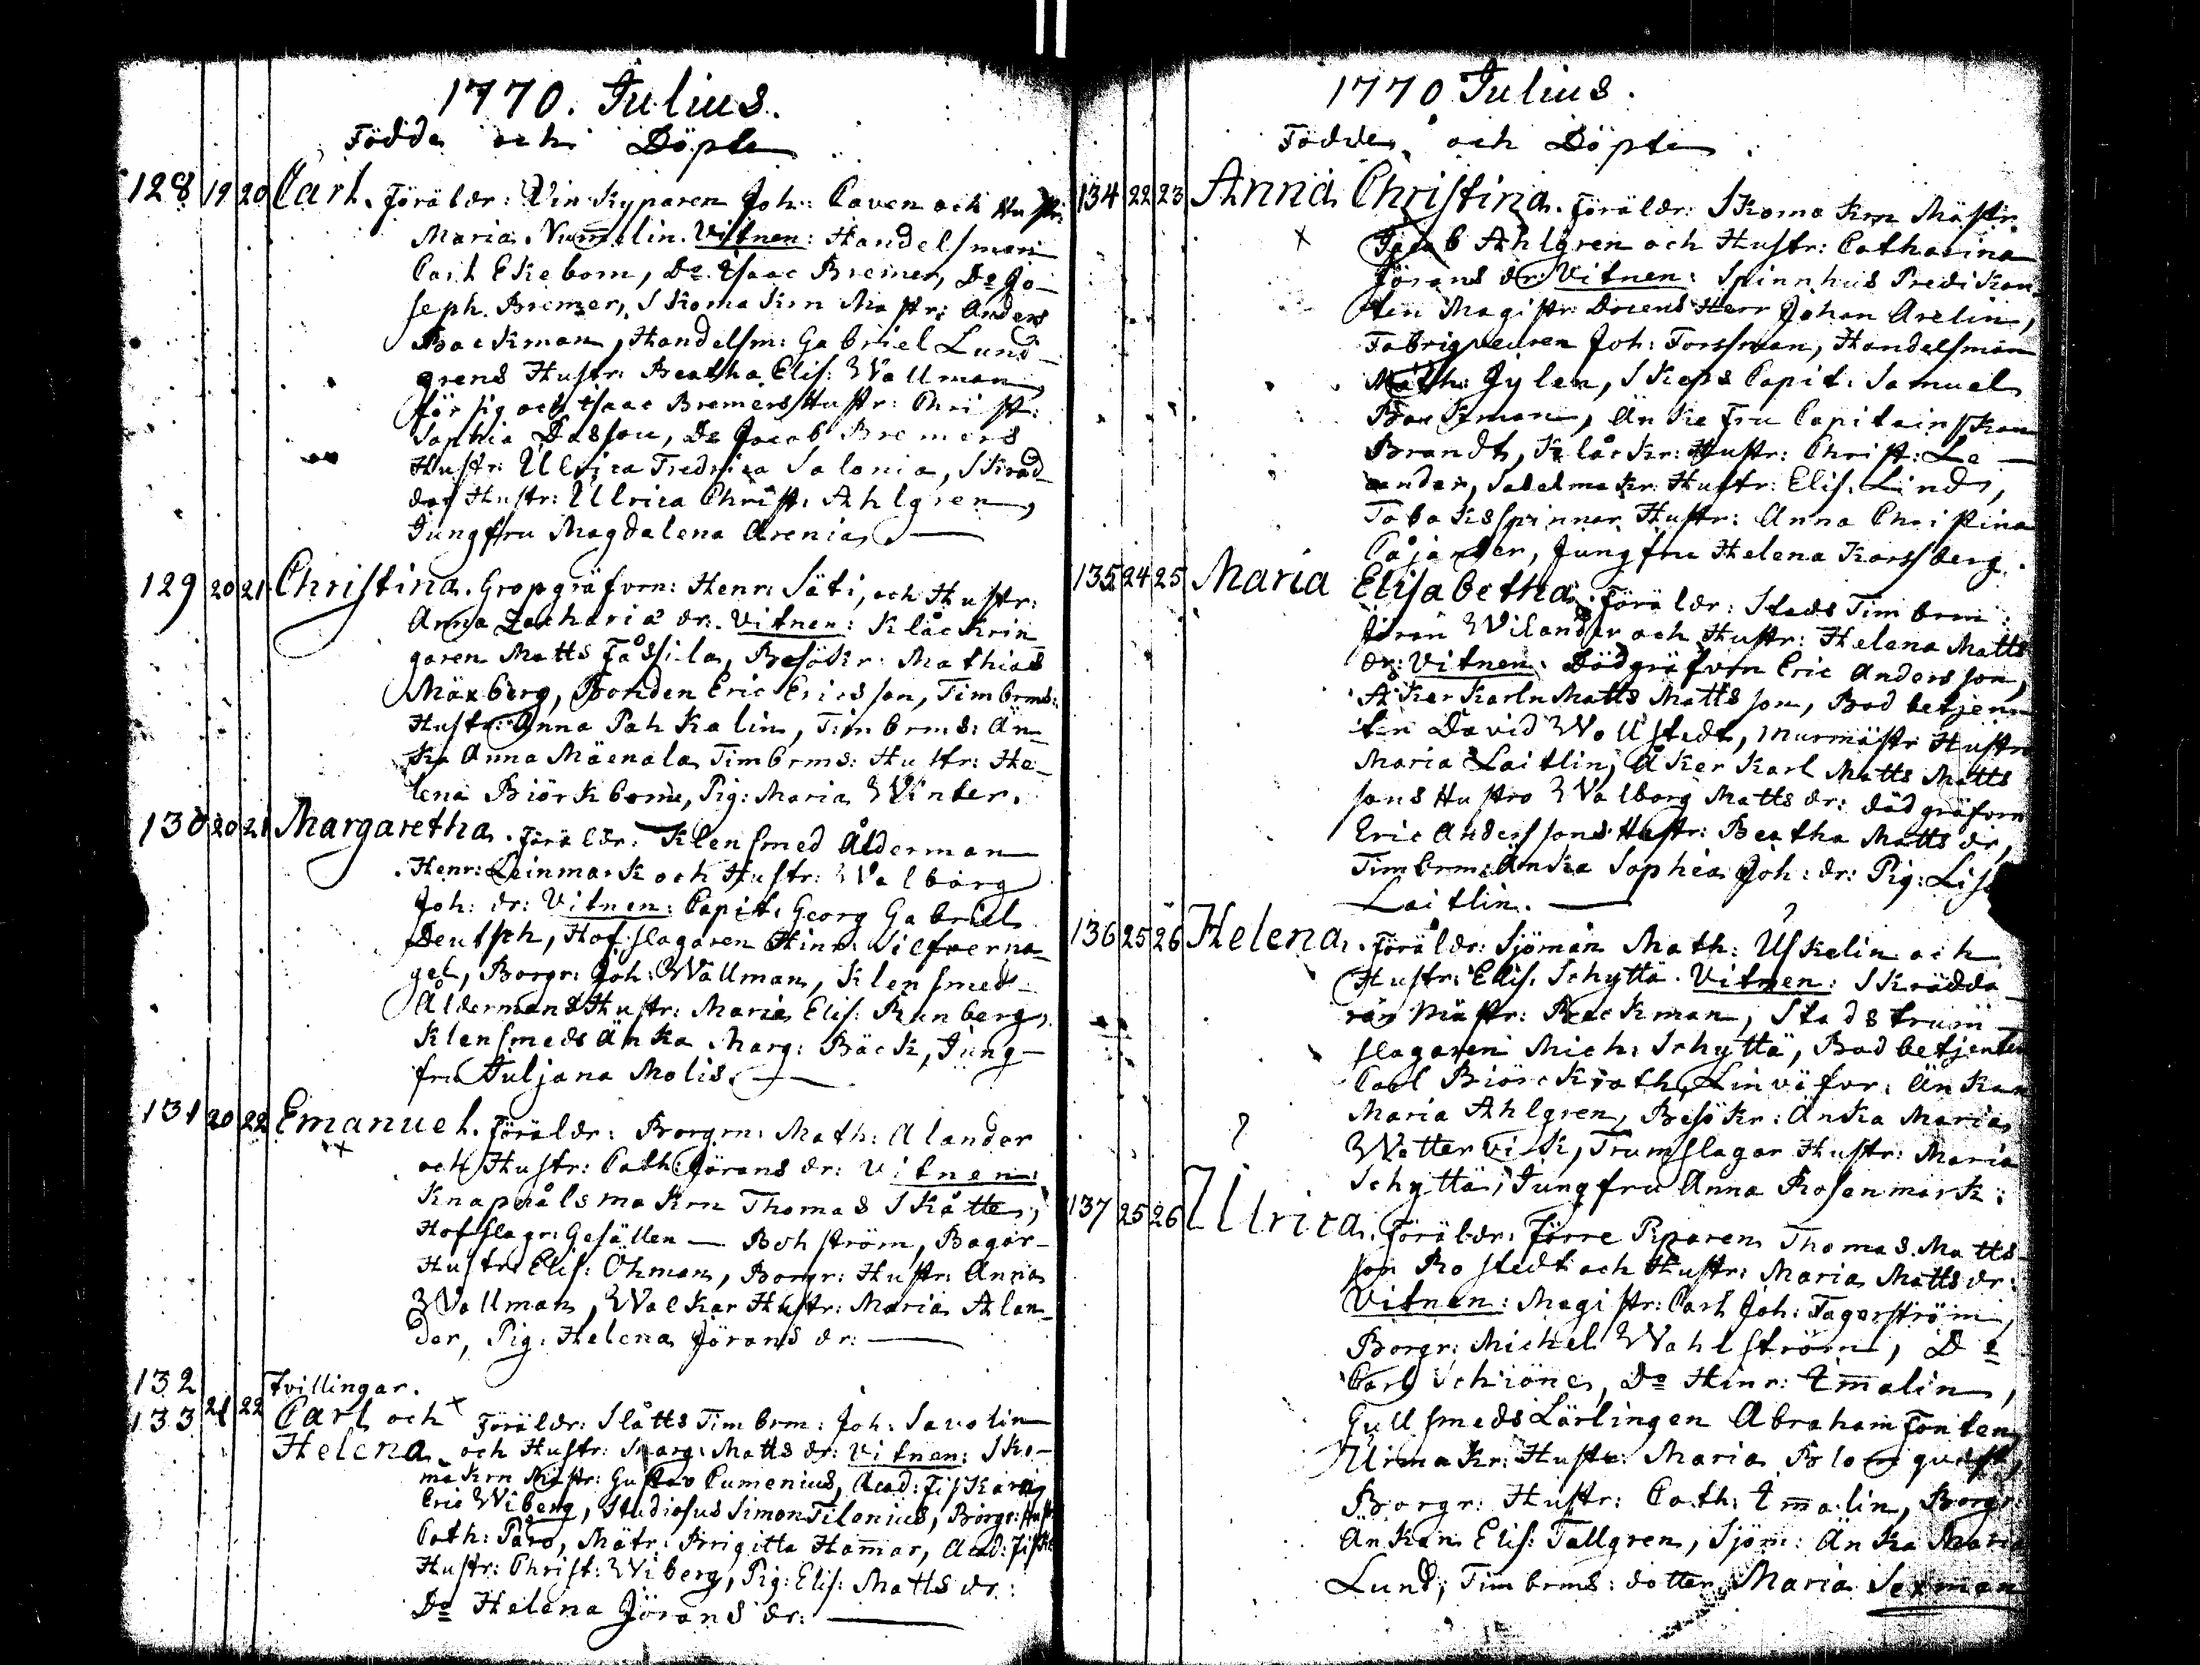 1770. Julius.
Födde och Döpte
128 19 20 Carl. Föräldr: Vin Kyparen Joh: Caven och Hustr:
Maria Num̅elin. Vitnen: Handelsman
Carl Ekebom, Do Isaac Bremer, Do Jo-
seph Bremer, Skomakrn Mästr: Anders
Backman, Handelsm: Gabriel Lund-
grens Hustr: Beatha Elis: Wallman,
för sig och Isaac Bremers Hustr: Christ:
Sophia Dassou, Do Jacob Bremers
Hustr: Ulrica Fredrica Salonia, Skräd-
dar Hustr: Ulrica Christ: Ahlgren,
Jungfru Magdalena Arenia.
129 20 21 Christina. Gropgräfvrn: Henr: Säti, och Hustr:
Anna Zachariæ dr. Vitnen: Klåckrin-
garen Matts Fåssila, Besökr: Mathias
Mäxberg, Bonden Eric Ericsson, Timbrms:
Hustr: Anna Pahkalin, Timbrms: Än-
ka Anna Mäenala Timbrms: Hustr: He-
lena Biörkbom, Pig: Maria Winter.
130 20 21 Margaretha. Föräldr: Klensmed Ålderman
Henr: Leinmark och Hustr: Walborg
Joh: dr: Vitnen: Capit: Georg Gabriel
Deutsch, Hofslagaren Hinr: Silfverna-
gel, Borgr: Joh: Wallman, Klensmed-
Åldermans Hustr: Maria Elis: Renberg,
Klensmeds Änka Marg: Bäck, Jung-
fru Juljana Molis.
131 20 22 Emanuel. Föräldr: Borgrn: Math: Alander
och Hustr: Cath: Jörans dr: Vitnen:
Knapnålsmakrn Thomas Skåtte,
Hofslagr: Gesällen — Bohström, Bagar-
Hustr: Elis: Öhman, Borgr: Hustr: Anna
Wallman, Walkar Hustr: Maria Alan-
der, Pig: Helena Jörans dr:
132 Tvillingar.
133 21 22 Carl och Föräldr: Slåtts Timbrm: Joh: Savolin
Helena. och Hustr: Marg: Matts dr: Vitnen: Sko-
makrn Mästr: Gustav Cumenius, Acad: Fiskarn
Eric Wiberg, Studiosus Simon Filonius, Borgr: Hustr:
Cath: Påro, Mätr: Brigitta Ham̅ar, Acad: Fiska
Hustr: Christ: Wiberg, Pig: Elis: Matts dr:
Do Helena Jörans dr:
1770 Julius.
Födde och Döpte
134 22 23 Anna Christina. Föräldr: Skomakrn Mästr.
Jacob Ahlgren och Hustr: Catharina
Jörans dr Vitnen: Spinnhus Predikan-
ten Magistr: Docens Herr Johan Arelin,
Fabriqueuren Joh: Forssman, Handelsman
Math: Gylen, Skeps Capit: Samuel
Backman, Änke Fru Capitainskan
Brandt, Klåckr: Hustr: Christ: Le-
ander, Sadelmakr: Hustr: Elis. Lind,
Tobaksspinnar Hustr: Anna Christina
Cajander, Jungfru Helena Korsberg.
135 24 25 Maria Elisabetha. Föräldr: Stads Timbrm:
Jöran Wilander och Hustr: Helena Matts
dr: Vitnen: Dödgräfvrn Eric Andersson,
Åkerkarln Matts Mattsson, Bad betjen-
ten David Wollstedt, Murmästr Hustru
Maria Laitlin, Åkerkarl Matts Matts
sons Hustro Walborg Matts dr: dödgräfvrn
Eric Anderssons Hustr: Beatha Matts dr,
Timbrm: Änka Sophia Joh: dr: Pig: Lisa
Laitlin.
136 25 26 Helena. Föräldr: Sjöman Math: Uskelin och
Hustr: Elis. Schyttä. Vitnen: Skrädda-
rn Mästr: Backman, Stadstrum̅-
slagaren Mich: Schyttä, Bad betjenten
Carl Biörckroth, Linväfvr: Änkan
Maria Ahlgren, Besökr: Änka Maria
Wettervik, Trumslagar Hustr: Maria
Schyttä, Jungfru Anna Rosenmark:
137 25 26 Ulrica. Föräldr: Förre Piparen Thomas Matts-
son Rostedt och Hustr: Maria Matts dr:
Vitnen: Magistr: Carl Joh: Fagerström,
Borgr: Michel Wahlström, Do
Carl Schiöne, Do Hinr: Im̅alin,
Gullsmeds Lärlingen Abraham Fonten,
Urmakr: Hustr: Maria Blomquist,
Borgr: Hustr: Cath: Im̅alin, Borgr:
Änkan Elis: Tallgren, Sjöm: Änka Maria
Lund, Timbrms: dotter Maria Sexman